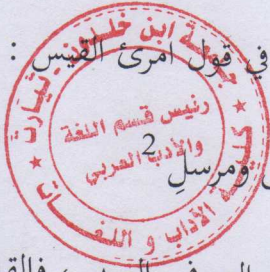 في قول امرئ القيس :
جامعة ابن خلدون تيارت
رئيس قسم اللغة
والأدب العربي
كلية الآداب و اللغات
ومرسلِ 2